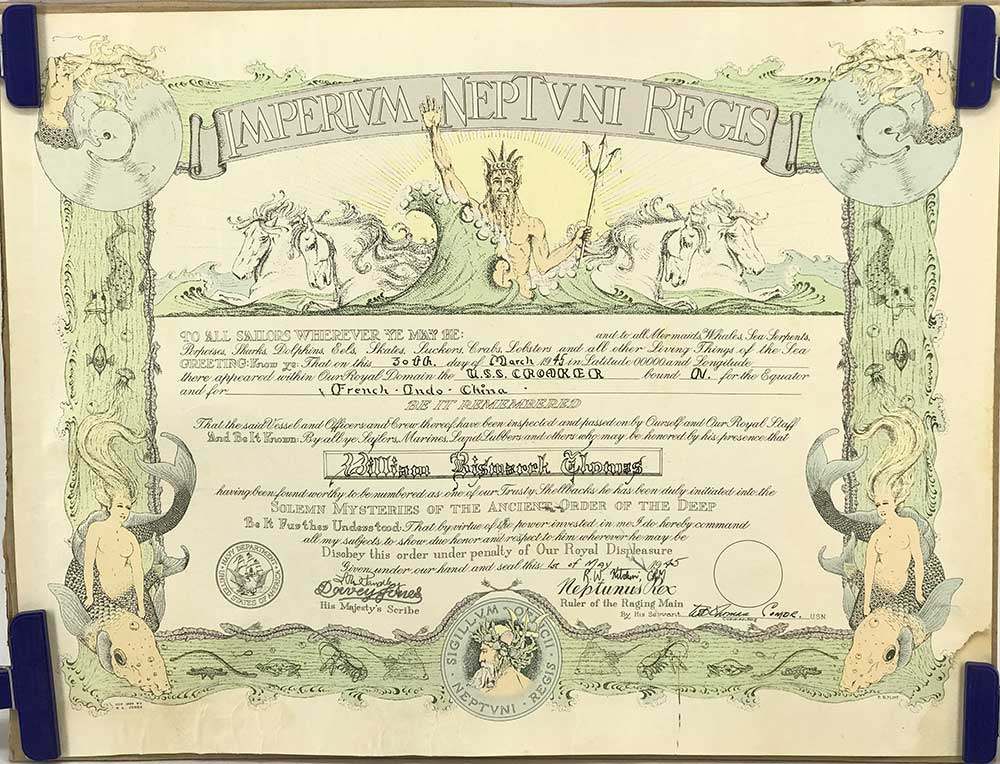 IMPERIVM NEPTVNI REGIS
TO ALL SAILORS WHEREVER YE MAY BE: and to all Mermaids, Whales, Sea Serpents,
Porpoises, Sharks, Dolphins, Eels, Skates, Suckers, Crabs, Lobsters and all other Living Things of the Sea
GREETING: Know ye: That on this 30th. day of March 1945 in Latitude 00000 and Longitude
there appeared within Our Royal Domain the U.S.S. CROAKER bound N. for the Equator
and for French-Indo-China.
BE IT REMEMBERED
That the said Vessel and Officers and Crew thereof have been inspected and passed on by Ourself and Our Royal Staff
And Be It Known: By all ye Sailors, Marines, Land Lubbers and others who may be honored by his presence that
William Bismarck Thomas
having been found worthy to be numbered as one of our Trusty Shellbacks he has been duly initiated into the
SOLEMN MYSTERIES OF THE ANCIENT ORDER OF THE DEEP
Be It Further Understood: That by virtue of the power invested in me I do hereby command
all my subjects to show due honor and respect to him wherever he may be
Disobey this order under penalty of Our Royal Displeasure
Given under our hand and seal this 1st of May 1945
NAVY DEPARTMENT
UNITED STATES OF AMERICA
Davey Jones
His Majesty's Scribe
R.W.
Neptunus Rex
Ruler of the Raging Main
By His Servant Thomas Comdr. USN
SIGILLVM OFFICII
NEPTVNI REGIS